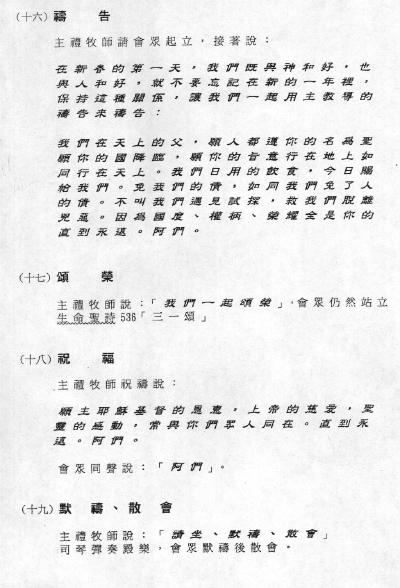 (十六) 禱 告
主禮牧師請會眾起立，接著說：
在新春的第一天，我們既與神和好，也
與人和好，就不要忘記在新的一年裡，
保持這種關係，讓我們一起用主教導的
禱告來禱告：
我們在天上的父，願人都遵你的名為聖
願你的國降臨，願你的旨意行在地上如
同行在天上。我們日用的飲食，今日賜
給我們。免我們的債，如同我們免了人
的債。不叫我們遇見試探，救我們脫離
兇惡。因為國度、權柄、榮耀全是你的
直到永遠。阿們。
(十七) 頌 榮
主禮牧師說：「我們一起頌榮」，會眾仍然站立
生命聖詩536「三一頌」
(十八) 祝 福
主禮牧師祝禱說：
願主耶穌基督的恩惠，上帝的慈愛，聖
靈的感動，常與你們眾人同在。直到永
遠。阿們。
會眾同聲說：「阿們」。
(十九) 默 禱、散 會
主禮牧師說：「請坐、默禱、散會」
司琴彈奏殿樂，會眾默禱後散會。